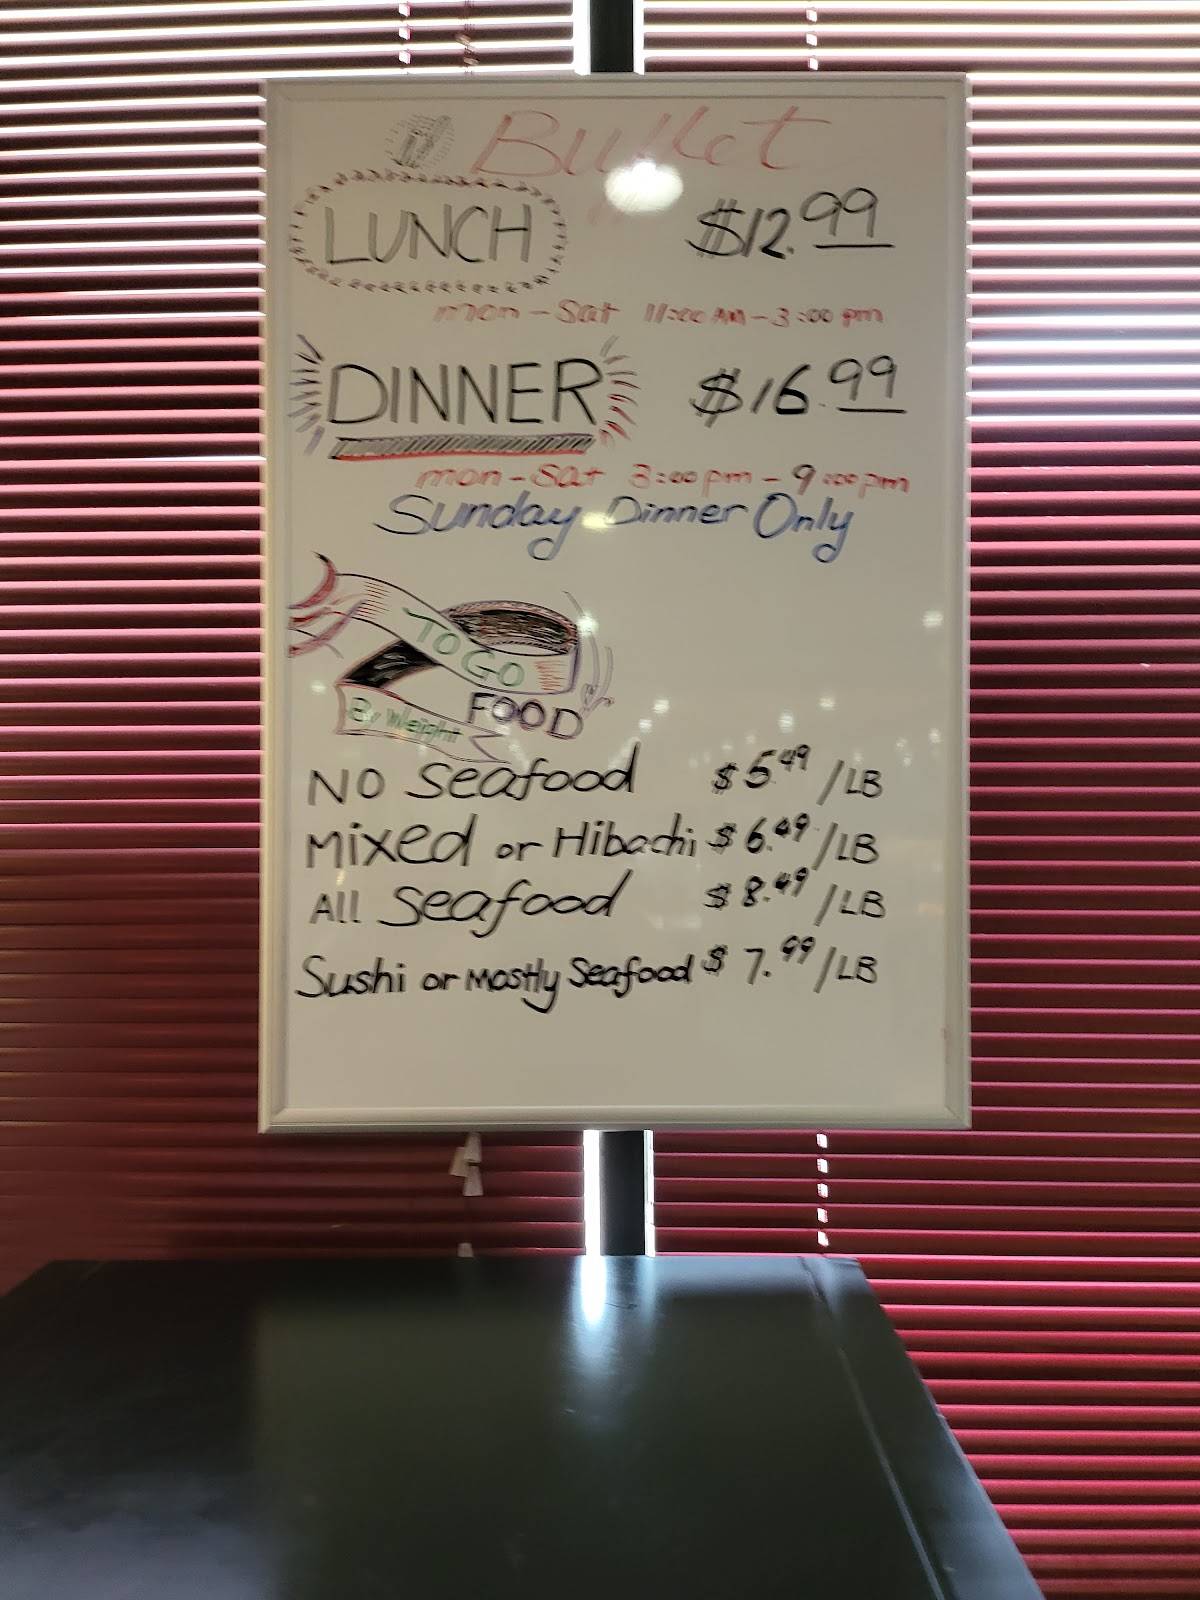 Buffet
LUNCH $12.99
mon-Sat 11:00 AM-3:00 pm
DINNER $16.99
mon-Sat 3:00pm-9:00pm
Sunday Dinner Only
TO GO
FOOD
By Weight
NO Seafood $5.49/LB
Mixed or Hibachi $6.49/LB
All Seafood $8.49/LB
Sushi or Mostly Seafood $7.99/LB